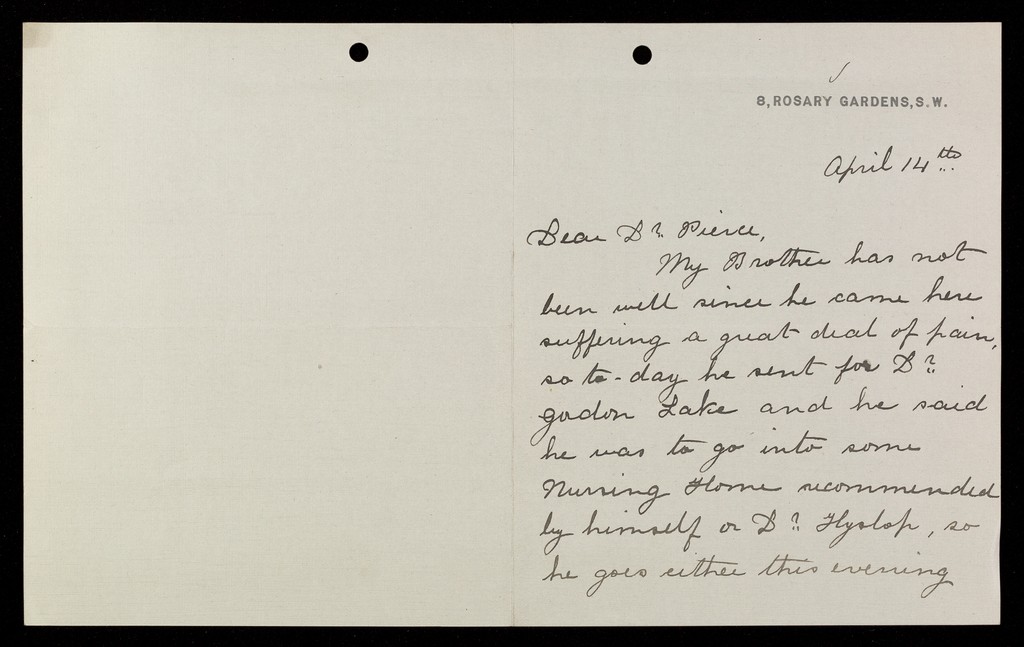 8, ROSARY GARDENS, S.W.
April 14th
Dear Dr. Pierce,
My Brother has not
been well since he came here
suffering a great deal of pain,
so to-day he sent for Dr.
Godon Lake and he said
he was to go into some
Nursing Home recommended
by himself or Dr. Hyslop, so
he goes either this evening